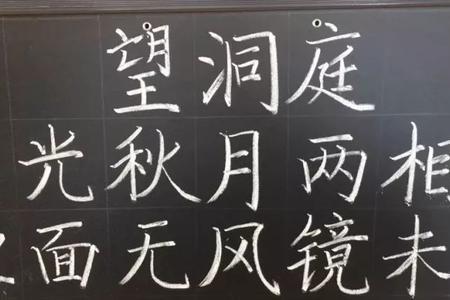 望洞庭
光秋月两相
面无风镜未